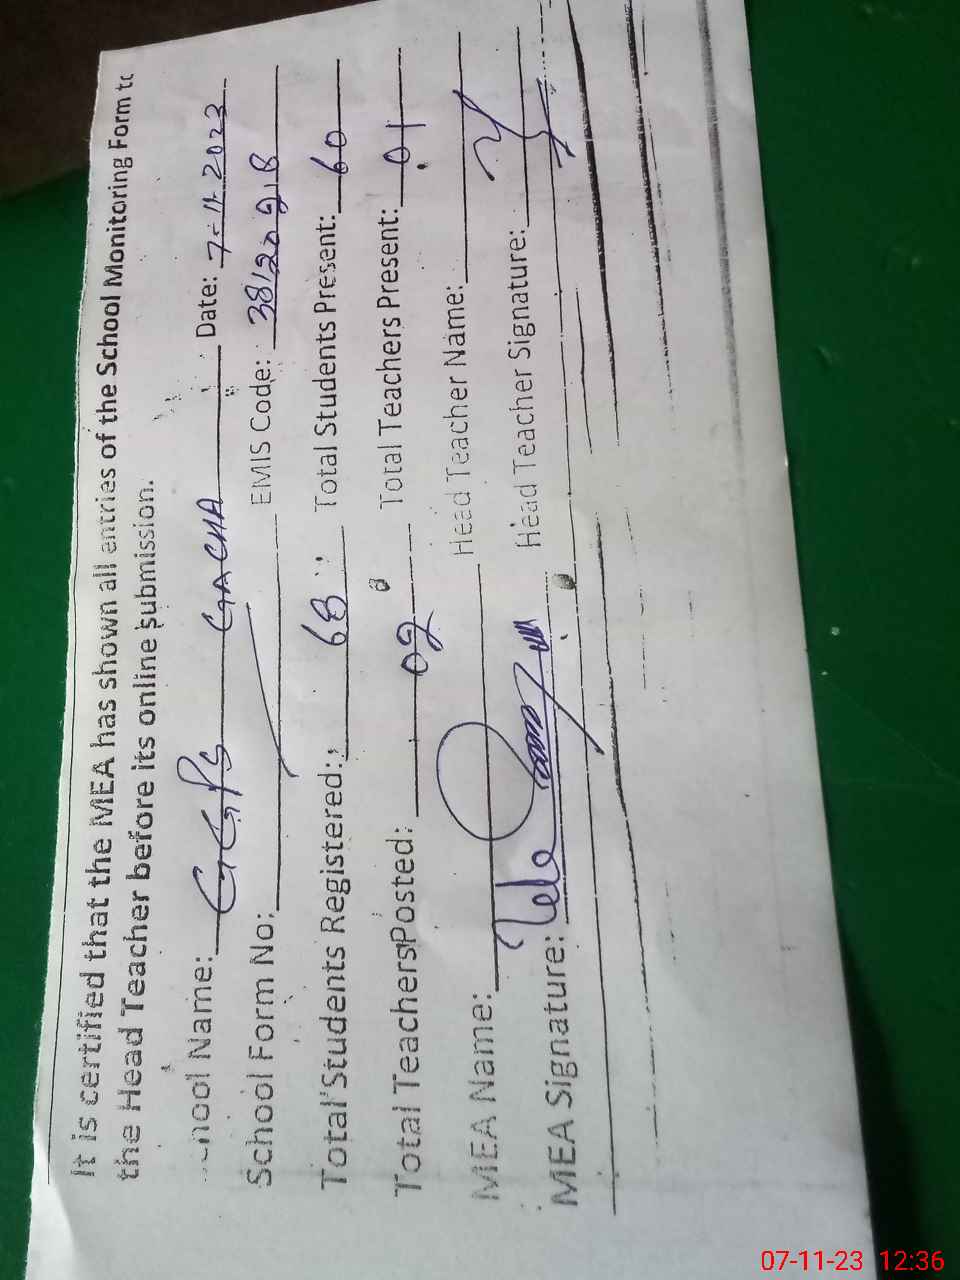 It is certified that the MEA has shown all entries of the School Monitoring Form to
the Head Teacher before its online submission.
School Name: GGPS GACHA Date: 7-11-2023
School Form No: EMIS Code: 38120218
Total Students Registered: 68 Total Students Present: 60
Total Teachers Posted: 02 Total Teachers Present: 01
MEA Name: Head Teacher Name:
MEA Signature: Head Teacher Signature:
07-11-23 12:36